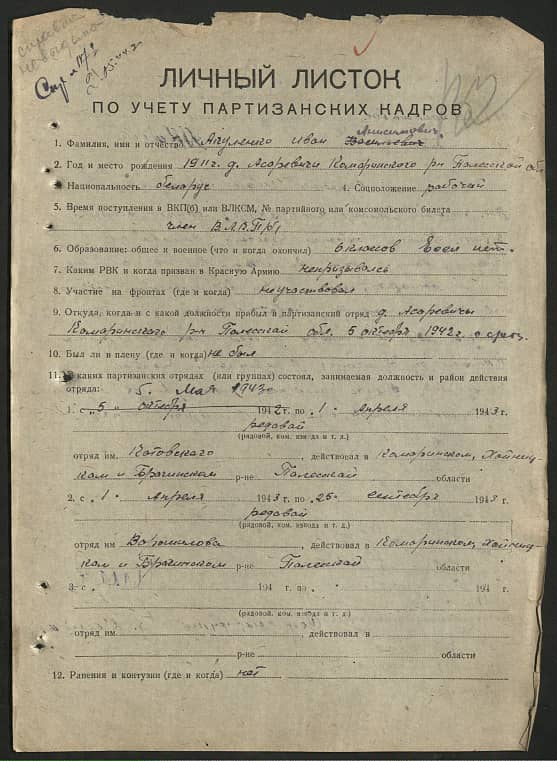 справка
Спр
ЛИЧНЫЙ ЛИСТОК
ПО УЧЕТУ ПАРТИЗАНСКИХ КАДРОВ
Анисимович
1. Фамилия, имя и отчество Акуленко Иван Васильевич
2. Год и место рождения 1911 г. д. Асаревичи Комаринского р-н Полесской обл
3. Национальность беларус 4. Соцположение рабочий
5. Время поступления в ВКП(б) или ВЛКСМ, № партийного или комсомольского билета
член
6. Образование: общее и военное (что и когда окончил) 6 класов
7. Каким РВК и когда призван в Красную Армию непризывался
8. Участие на фронтах (где и когда) неучаствовал
9. Откуда, когда и с какой должности прибыл в партизанский отряд д. Асаревичи
Комаринского р-н Полесской обл. 5 октября 1942 г.
10. Был ли в плену (где и когда) не был
11. В каких партизанских отрядах (или группах) состоял, занимаемая должность и район действия
отряда: 5. Мая 1943
1. с „5 октября 1942 г. по „1 Апреля 1943 г.
редавой
(рядовой, ком. взвода и т. д.)
отряд им. Котовского, действовал в Комаринском, Хойниц
ком и Брагинском р-не Полесской области
2. с „1 Апреля 1943 г. по „25 сентября 1943 г.
редавой
(рядовой, ком. взвода и т. д.)
отряд им Ворошилова, действовал в Комаринском, Хойниц
ком и Брагинском р-не Полесской области
3. с 194 г. по 194 г.
(рядовой, ком. взвода и т. д.)
отряд им., действовал в
р-не области
12. Ранения и контузии (где и когда) нет